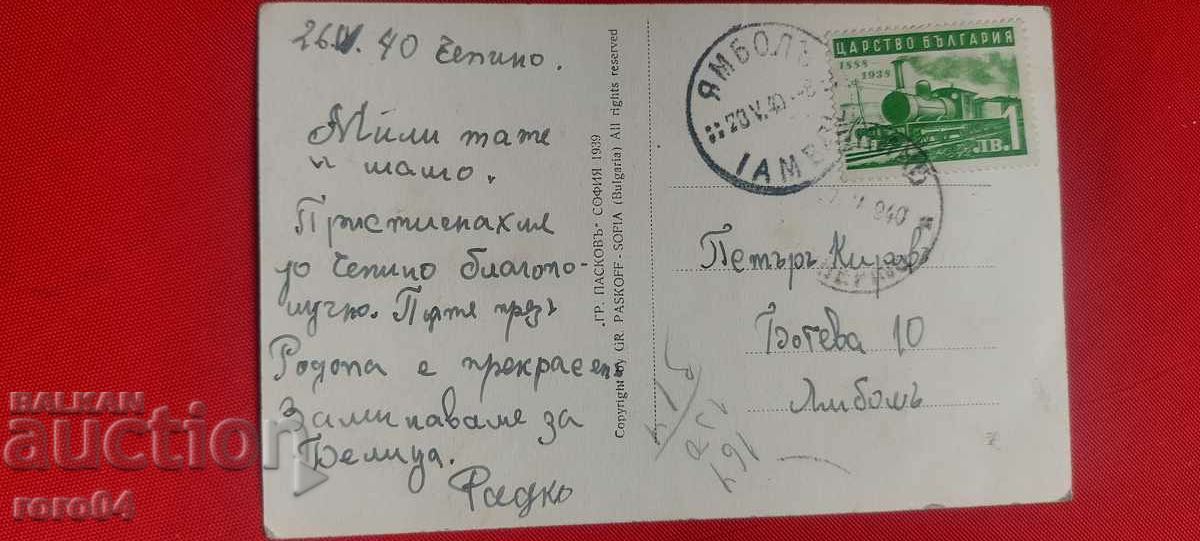 26.V.40 Чепино.
Мили тате
и мамо.
Пристигнахме
до Чепино благопо-
лучно. Пътя презъ
Родопа е прекрасенъ
Заминаваме за
Белица.
Радко
"ГР. ПАСКОВЪ" СОФИЯ 1939
Copyright by GR. PASKOFF - SOFIA (Bulgaria) All rights reserved
ЯМБОЛЪ
28.V.40
ЦАРСТВО БЪЛГАРИЯ
1888-
1938
1 ЛВ.
940
Петъръ Кировъ
Ботева 10
Ямболъ
BALKAN
auction
roro04